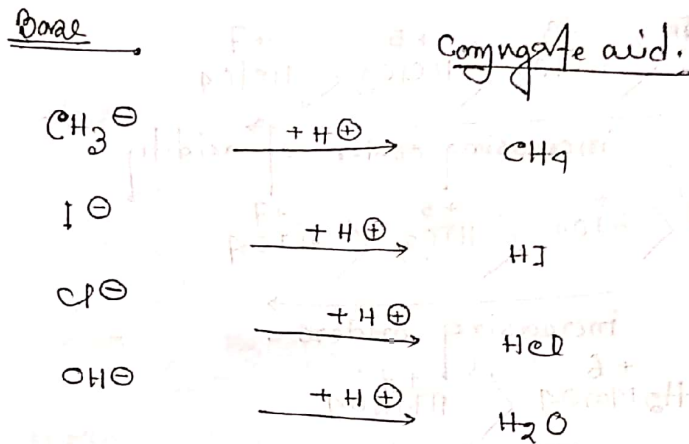 Base
Conjugate acid.
CH3⊖ + H⊕ → CH4
I⊖ + H⊕ → HI
Cl⊖ + H⊕ → HCl
OH⊖ + H⊕ → H2O